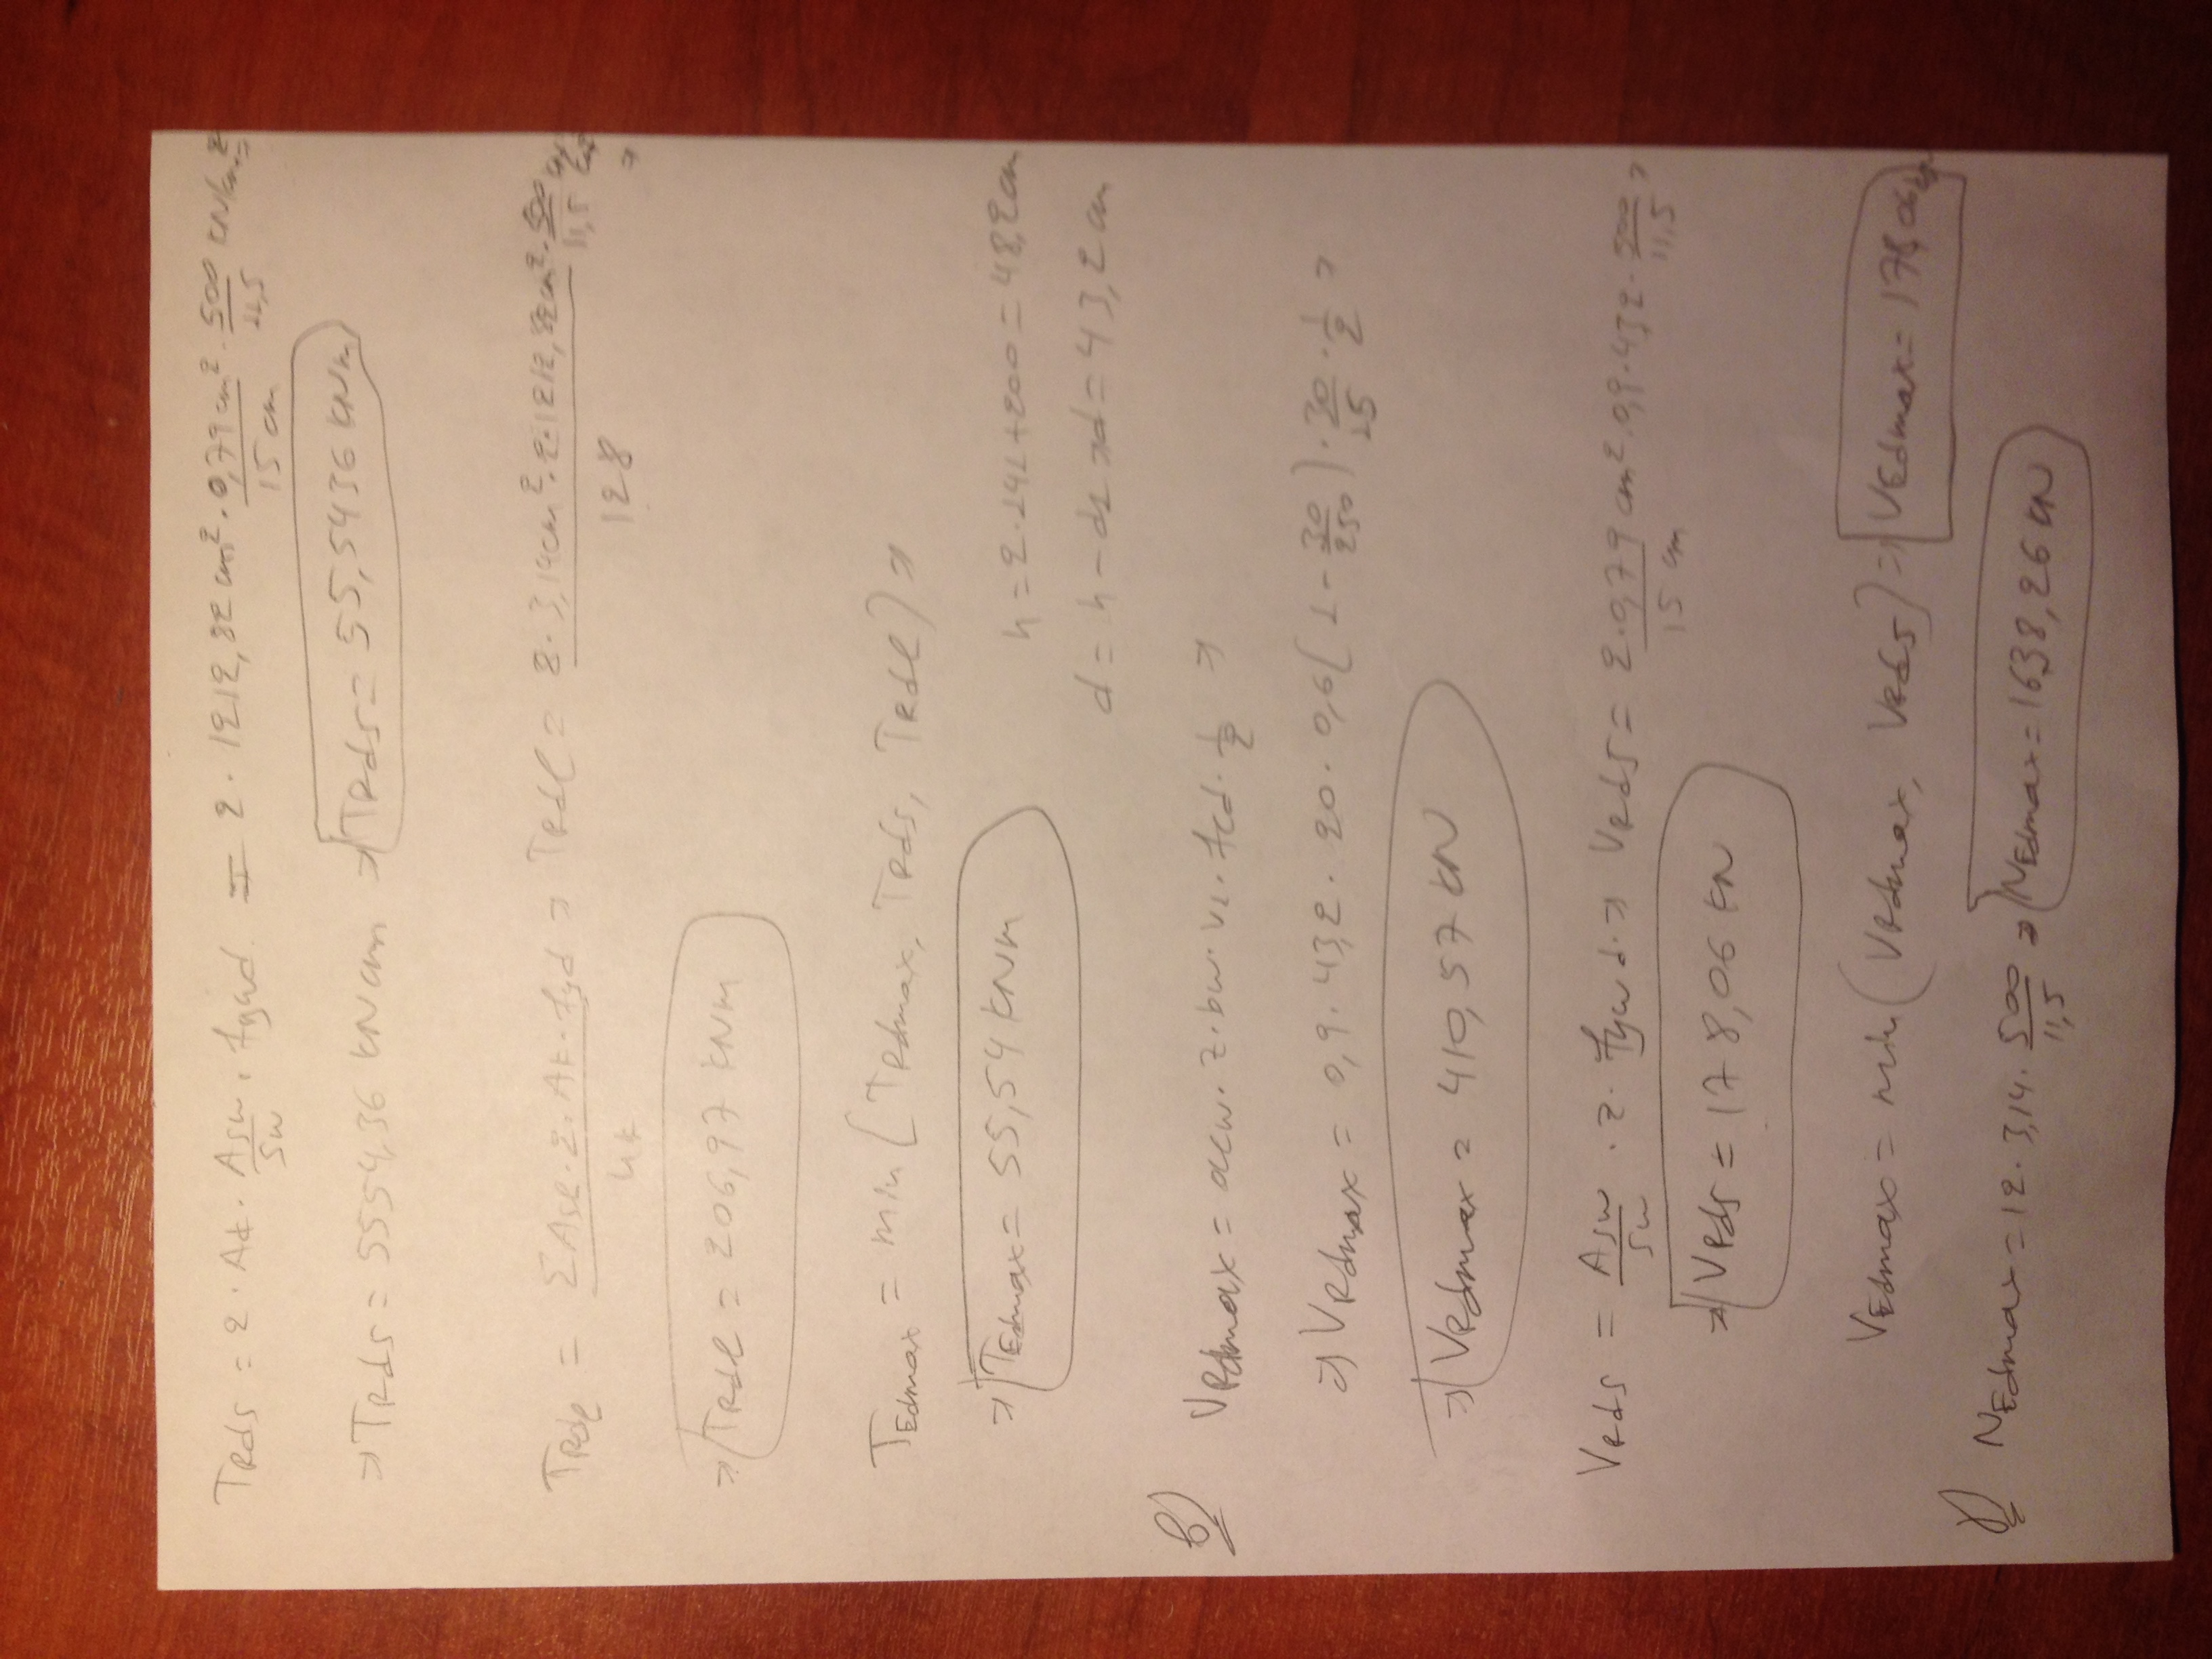 TRds = 2 · Ak · Asw/sw · fywd = 2 · 1212,82 cm² · 0,79 cm²/15 cm · 500/11,5 kN/cm² =
⇒ TRds = 5554,36 kNcm ⇒ TRds = 55,5436 kNm
TRdl = ΣAsl · 2 · Ak · fyd/uk ⇒ TRdl = 8 · 3,14 cm² · 2 · 1212,82 cm² · 500/11,5/128 ⇒
⇒ TRdl = 206,97 kNm
TEdmax = min (TRdmax, TRds, TRdl) ⇒
⇒ TEdmax = 55,54 kNm
h = 2 · 141 + 200 = 48,2 cm
d = h - d1 ⇒ d = 43,2 cm
β) VRdmax = αcw · z · bw · v1 · fcd · 1/2 ⇒
⇒ VRdmax = 0,9 · 43,2 · 20 · 0,6 (1 - 30/250) · 30/15 · 1/2 ⇒
⇒ VRdmax = 410,57 kN
VRds = Asw/sw · z · fywd ⇒ VRds = 2 · 0,79 cm²/15 cm · 0,9 · 43,2 · 500/11,5 ⇒
⇒ VRds = 178,06 kN
VEdmax = min (VRdmax, VRds) ⇒ VEdmax = 178,06
γ) NEdmax = 12 · 3,14 · 500/11,5 ⇒ NEdmax = 1638,26 kN